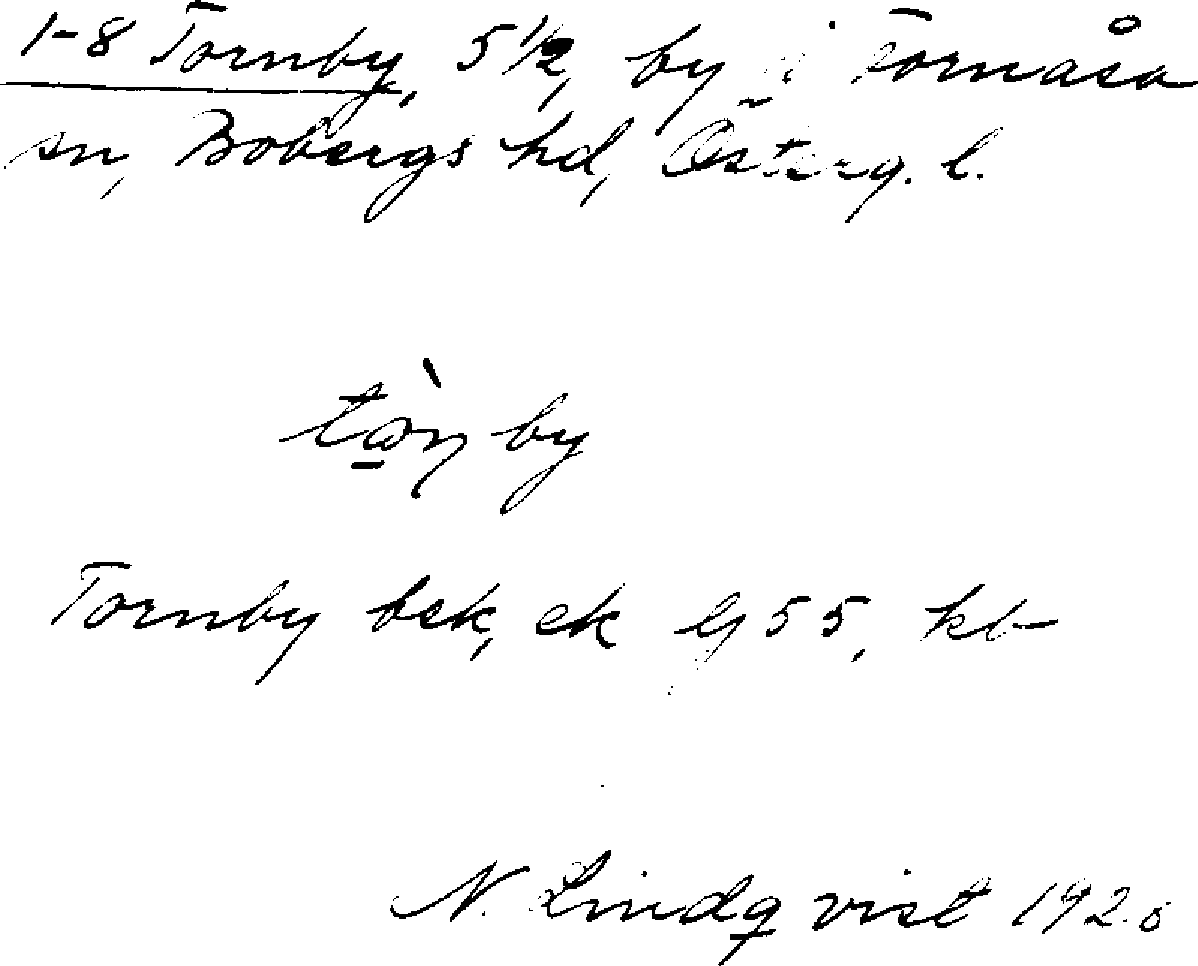 1-8 Tornby, 5 1/2, by i Fornåsa
sn, Bobergs hd, Österg. l.
by
Tornby bek, ek G 55, kb
N. Lindqvist 192